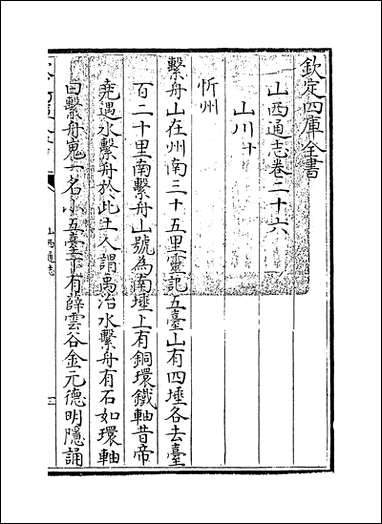 欽定四庫全書
山西通志卷二十六
山川
忻州
繫舟山在州南三十五里靈記五臺山有四埵各去臺
百二十里南繫舟山號為南埵上有銅環鐵軸昔帝
堯遇水繫舟於此土人謂禹治水繫舟有石如環軸
曰繫舟嵬一名小五臺下有薛雲谷金元德明隱誦
山西通志